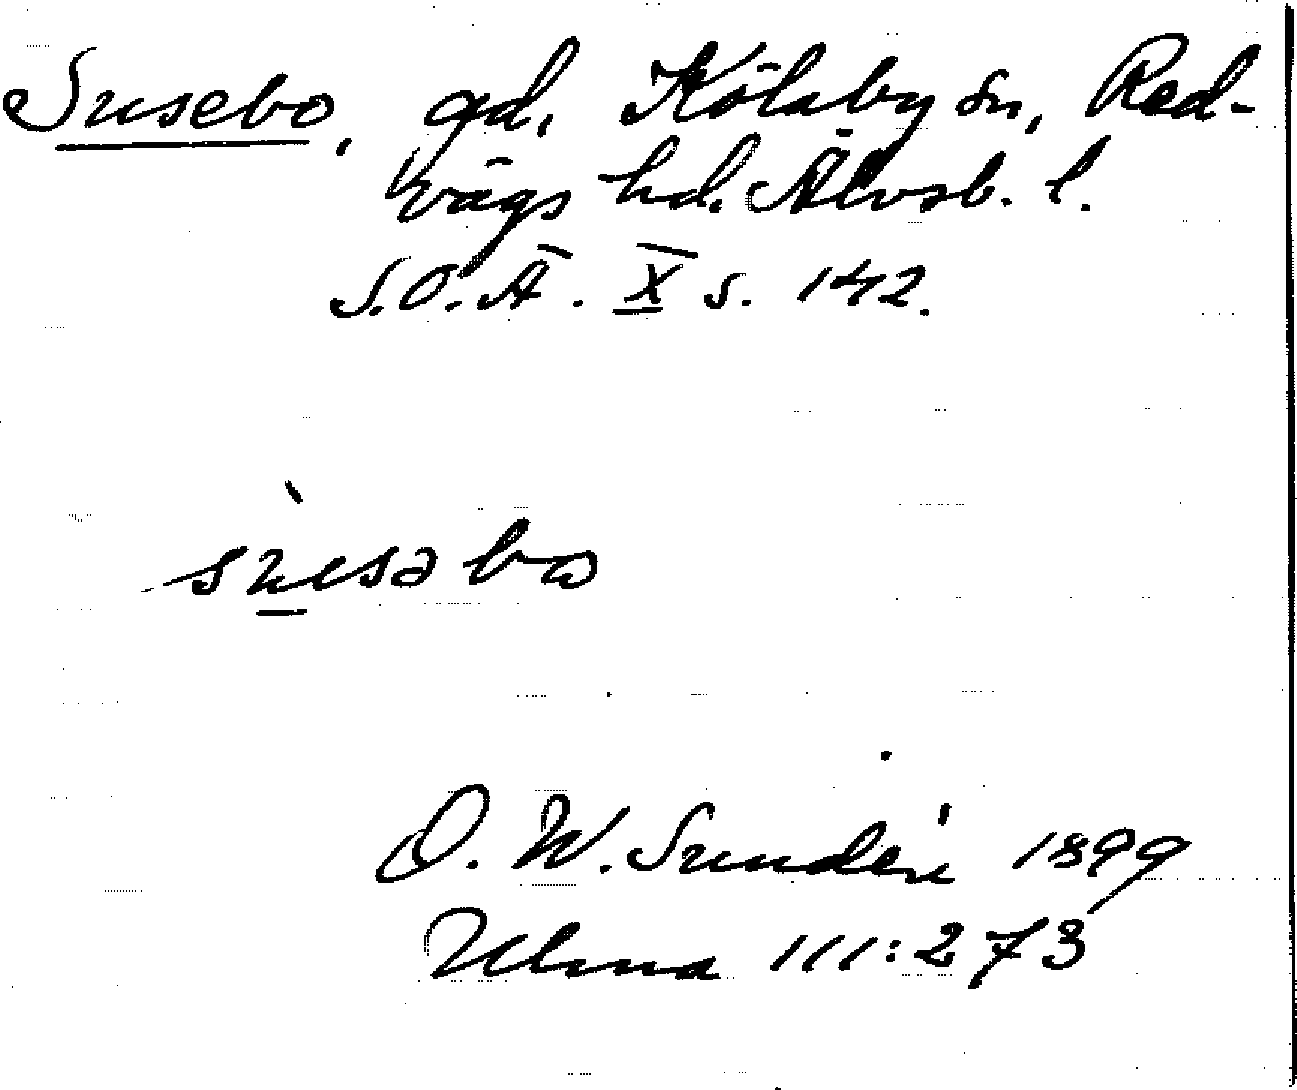 Susebo, gd, Kölaby sn, Red-
vägs hd. Älvsb. l.
S.O.Ä. X s. 142.
sùsəbo
O. W. Sundén 1899
Ulma 111:273